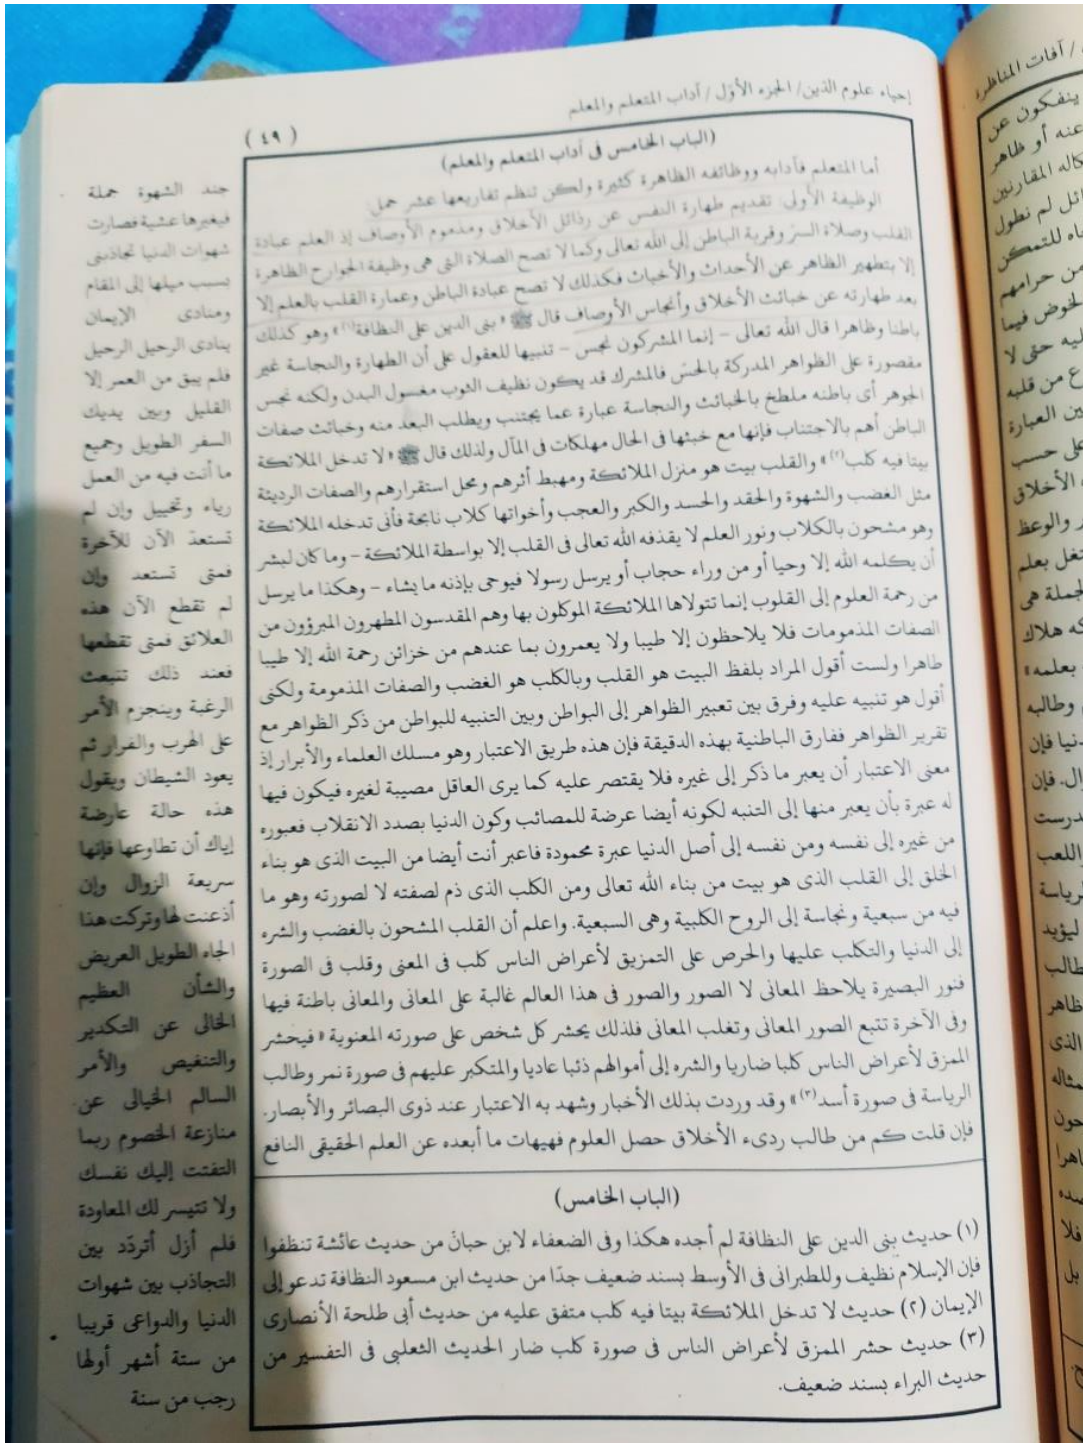 إحياء علوم الدين / الجزء الأول / آداب المتعلم والمعلم
( ٤٩ )
(الباب الخامس فى آداب المتعلم والمعلم)
أما المتعلم فآدابه ووظائفه الظاهرة كثيرة ولكن تنظم تفاريعها عشر جمل
الوظيفة الأولى: تقديم طهارة النفس عن رذائل الأخلاق ومذموم الأوصاف إذ العلم عبادة
القلب وصلاة السر وقربة الباطن إلى الله تعالى وكما لا تصح الصلاة التى هى وظيفة الجوارح الظاهرة
إلا بتطهير الظاهر عن الأحداث والأخباث فكذلك لا تصح عبادة الباطن وعمارة القلب بالعلم إلا
بعد طهارته عن خبائث الأخلاق وأنجاس الأوصاف قال ﷺ «بنى الدين على النظافة(١)» وهو كذلك
باطنا وظاهرا قال الله تعالى – إنما المشركون نجس – تنبيها للعقول على أن الطهارة والنجاسة غير
مقصورة على الظواهر المدركة بالحسّ فالمشرك قد يكون نظيف الثوب مغسول البدن ولكنه نجس
الجوهر أى باطنه ملطخ بالخبائث والنجاسة عبارة عما يجتنب ويطلب البعد منه وخبائث صفات
الباطن أهم بالاجتناب فإنها مع خبثها فى الحال مهلكات فى المآل ولذلك قال ﷺ «لا تدخل الملائكة
بيتا فيه كلب(٢)» والقلب بيت هو منزل الملائكة ومهبط أثرهم ومحل استقرارهم والصفات الرديئة
مثل الغضب والشهوة والحقد والحسد والكبر والعجب وأخواتها كلاب نابحة فأنى تدخله الملائكة
وهو مشحون بالكلاب ونور العلم لا يقذفه الله تعالى فى القلب إلا بواسطة الملائكة – وما كان لبشر
أن يكلمه الله إلا وحيا أو من وراء حجاب أو يرسل رسولا فيوحى بإذنه ما يشاء – وهكذا ما يرسل
من رحمة العلوم إلى القلوب إنما تتولاها الملائكة الموكلون بها وهم المقدسون المطهرون المبرؤون من
الصفات المذمومات فلا يلاحظون إلا طيبا ولا يعمرون بما عندهم من خزائن رحمة الله إلا طيبا
طاهرا ولست أقول المراد بلفظ البيت هو القلب وبالكلب هو الغضب والصفات المذمومة ولكنى
أقول هو تنبيه عليه وفرق بين تعبير الظواهر إلى البواطن وبين التنبيه للبواطن من ذكر الظواهر مع
تقرير الظواهر ففارق الباطنية بهذه الدقيقة فإن هذه طريق الاعتبار وهو مسلك العلماء والأبرار إذ
معنى الاعتبار أن يعبر ما ذكر إلى غيره فلا يقتصر عليه كما يرى العاقل مصيبة لغيره فيكون فيها
له عبرة بأن يعبر منها إلى التنبه لكونه أيضا عرضة للمصائب وكون الدنيا بصدد الانقلاب فعبوره
من غيره إلى نفسه ومن نفسه إلى أصل الدنيا عبرة محمودة فاعبر أنت أيضا من البيت الذى هو بناء
الخلق إلى القلب الذى هو بيت من بناء الله تعالى ومن الكلب الذى ذم لصفته لا لصورته وهو ما
فيه من سبعية ونجاسة إلى الروح الكلبية وهى السبعية. واعلم أن القلب المشحون بالغضب والشره
إلى الدنيا والتكلب عليها والحرص على التمزيق لأعراض الناس كلب فى المعنى وقلب فى الصورة
فنور البصيرة يلاحظ المعانى لا الصور والصور فى هذا العالم غالبة على المعانى والمعانى باطنة فيها
وفى الآخرة تتبع الصور المعانى وتغلب المعانى فلذلك يحشر كل شخص على صورته المعنوية «فيحشر
الممزق لأعراض الناس كلبا ضاريا والشره إلى أموالهم ذئبا عاديا والمتكبر عليهم فى صورة نمر وطالب
الرياسة فى صورة أسد(٣)» وقد وردت بذلك الأخبار وشهد به الاعتبار عند ذوى البصائر والأبصار.
فإن قلت كم من طالب ردىء الأخلاق حصل العلوم فهيهات ما أبعده عن العلم الحقيقى النافع
(الباب الخامس)
(١) حديث بنى الدين على النظافة لم أجده هكذا وفى الضعفاء لابن حبان من حديث عائشة تنظفوا
فإن الإسلام نظيف وللطبرانى فى الأوسط بسند ضعيف جدّا من حديث ابن مسعود النظافة تدعو إلى
الإيمان (٢) حديث لا تدخل الملائكة بيتا فيه كلب متفق عليه من حديث أبى طلحة الأنصارى
(٣) حديث حشر الممزق لأعراض الناس فى صورة كلب ضار الحديث الثعلبى فى التفسير من
حديث البراء بسند ضعيف.
جند الشهوة حملة
فيغيرها عشية فصارت
شهوات الدنيا تجاذبنى
بسبب ميلها إلى المقام
ومنادى الإيمان
ينادى الرحيل الرحيل
فلم يبق من العمر إلا
القليل وبين يديك
السفر الطويل وجميع
ما أنت فيه من العمل
رياء وتخييل وإن لم
تستعدّ الآن للآخرة
فمتى تستعد وإن
لم تقطع الآن هذه
العلائق فمتى تقطعها
فعند ذلك تنبعث
الرغبة وينجزم الأمر
على الهرب والفرار ثم
يعود الشيطان ويقول
هذه حالة عارضة
إياك أن تطاوعها فإنها
سريعة الزوال وإن
أذعنت لها وتركت هذا
الجاه الطويل العريض
والشأن العظيم
الخالى عن التكدير
والتنغيص والأمر
السالم الخيالى عن
منازعة الخصوم ربما
التفتت إليك نفسك
ولا تتيسر لك المعاودة
فلم أزل أتردّد بين
التجاذب بين شهوات
الدنيا والدواعى قريبا
من ستة أشهر أولها
رجب من سنة
/ آفات المناظرة
ينفكون عن
عنه أو ظاهر
المقارنين
لم نطول
للتمكن
من حرامهم
الخوض فيما
حتى لا
من قلبه
العبارة
على حسب
الأخلاق
والوعظ
بعلم
هى
هلاك
بعلمه»
وطالبه
فإن
فإن
اللعب
ليؤيد
الذى
فلا
بل